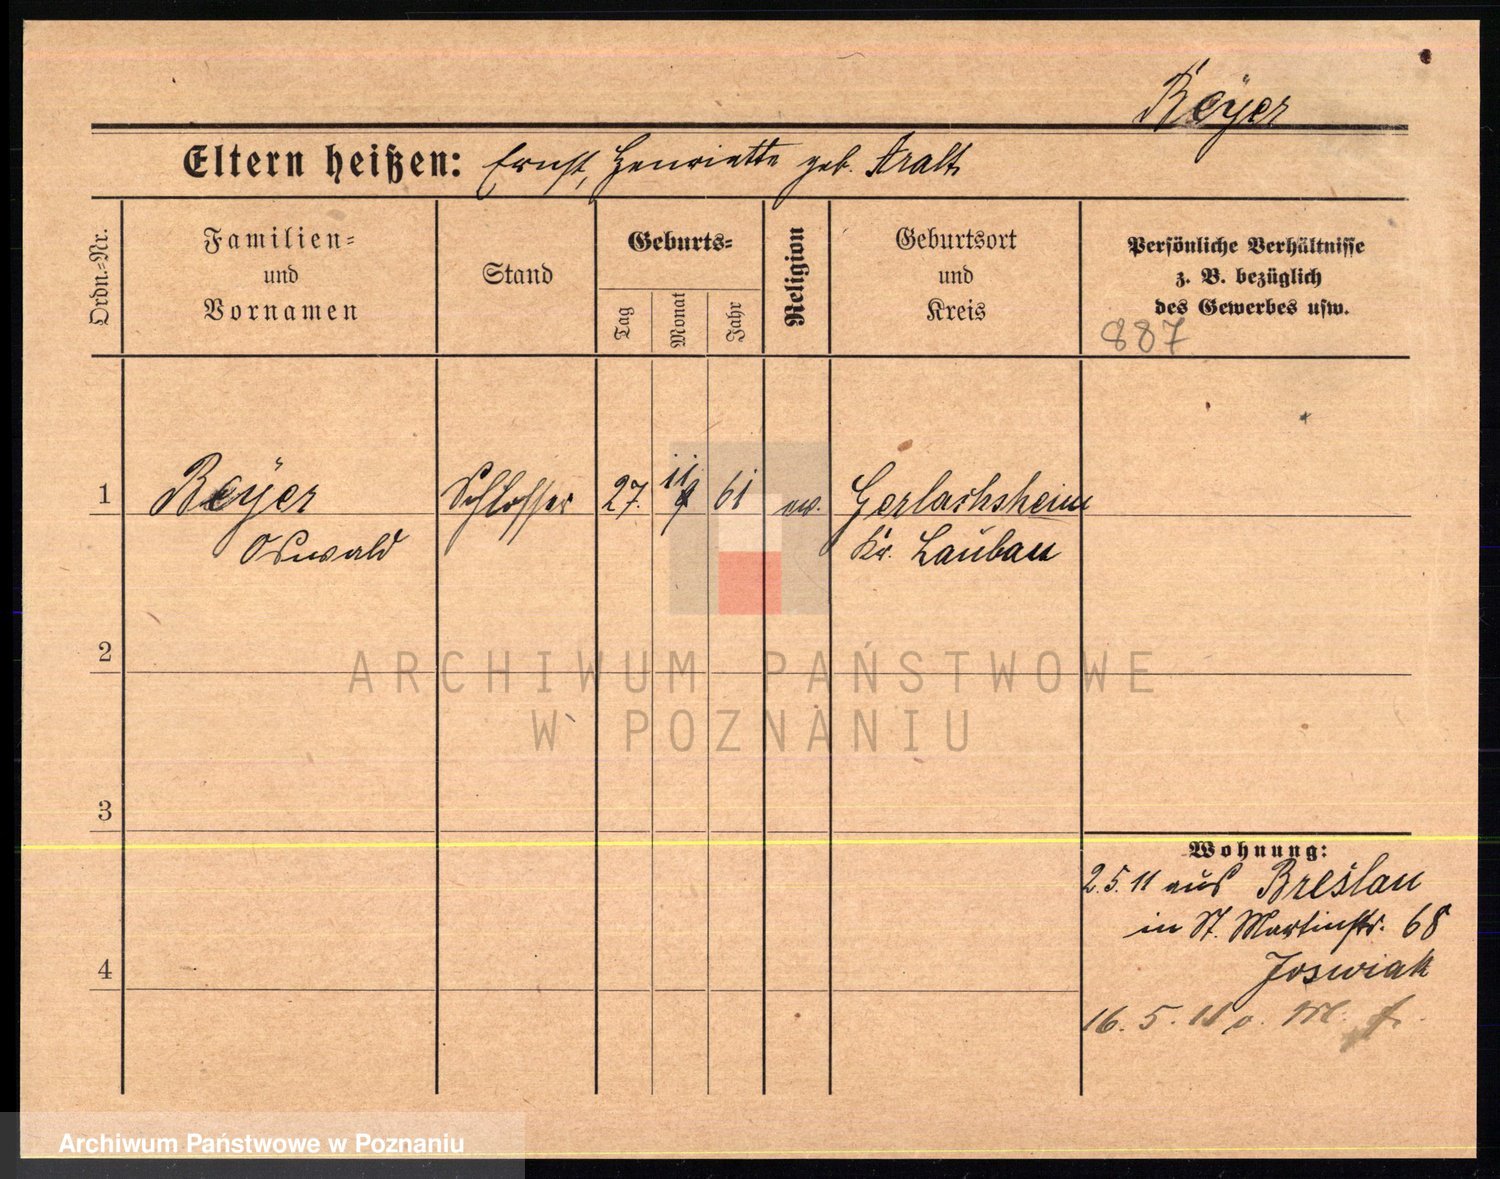 Reÿer
Eltern heißen: Ernst, Henriette geb. Aralt
Ordn.-Nr.
Familien-
und
Vornamen
Stand
Geburts-
Tag
Monat
Jahr
Religion
Geburtsort
und
Kreis
Persönliche Verhältnisse
z. B. bezüglich
des Gewerbes usw.
887
1 Reÿer Schlosser 27. 11 61 ev. Gerlachsheim
Oswald Kr. Lauban
2
3
4
Wohnung:
2.5.11 aus Breslau
in St. Martinstr. 68
Joswiak
16. 5. 11
ARCHIWUM PAŃSTWOWE
W POZNANIU
Archiwum Państwowe w Poznaniu